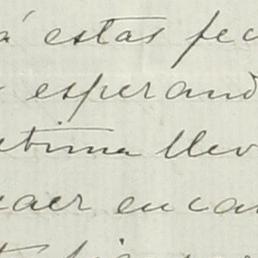 á estas fec
esperand
ltima llev
caer en ca